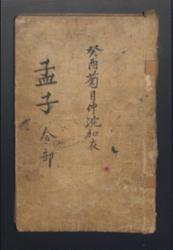 癸酉菊月仲浣加衣
孟子 全部